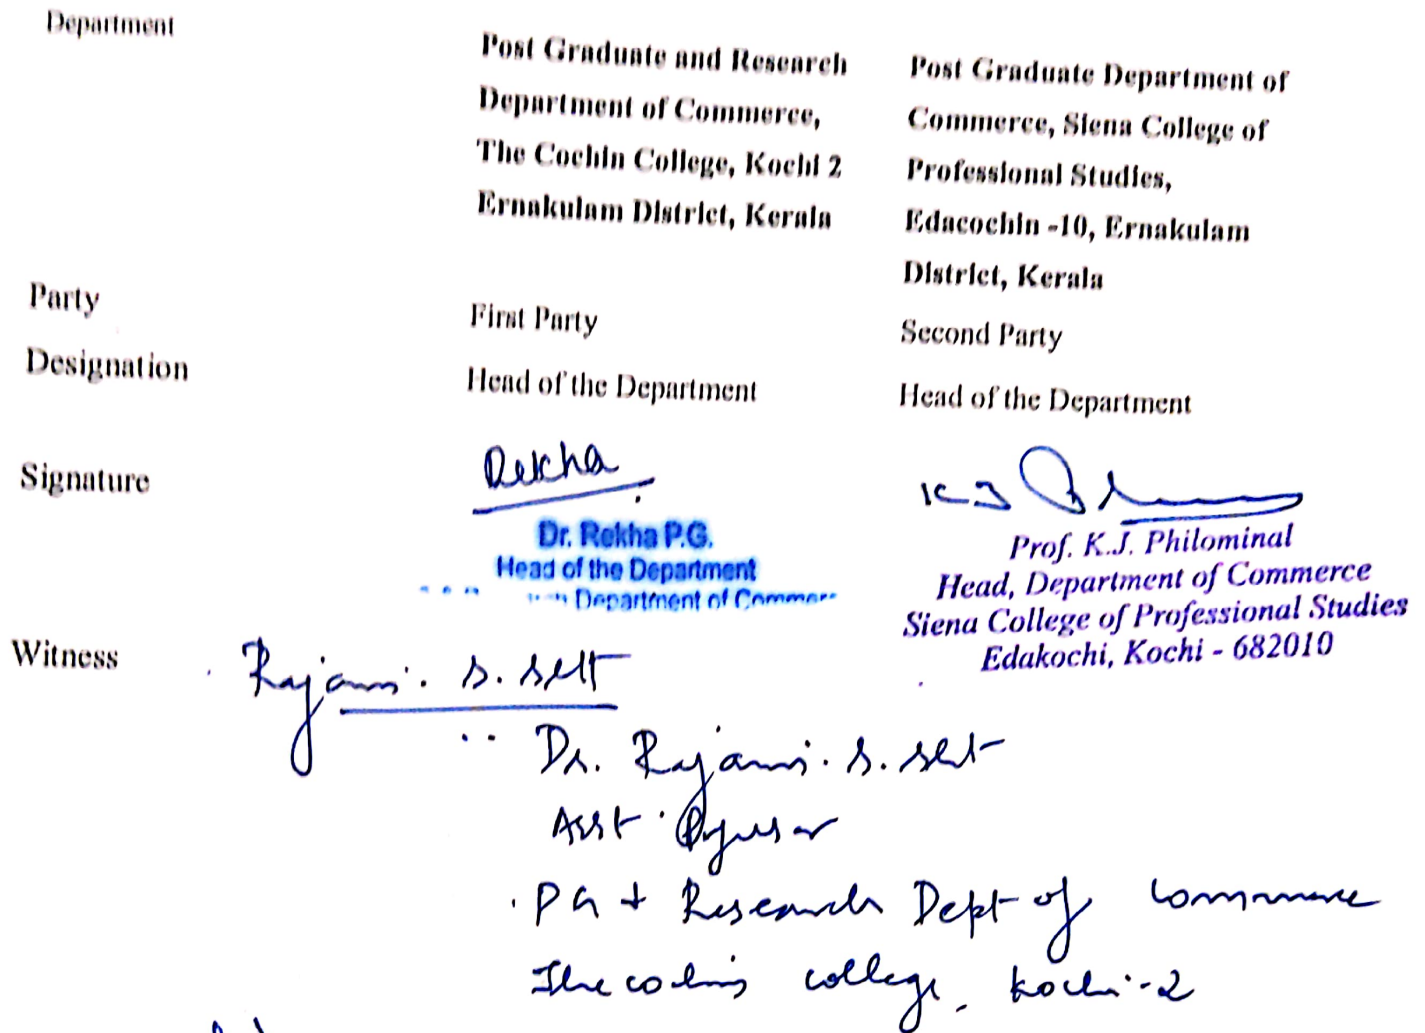 Department
Post Graduate and Research
Department of Commerce,
The Cochin College, Kochi 2
Ernakulam District, Kerala
Post Graduate Department of
Commerce, Siena College of
Professional Studies,
Edacochin -10, Ernakulam
District, Kerala
Party First Party Second Party
Designation Head of the Department Head of the Department
Signature Rekha K J
Dr. Rekha P.G.
Head of the Department
Department of Commerc
Prof. K.J. Philominal
Head, Department of Commerce
Siena College of Professional Studies
Edakochi, Kochi - 682010
Witness Rajani. S. Sett
Dr. Rajani. S. Sett
Asst. Professor
PG & Research Dept of Commerce
The Cochin College, Kochi-2